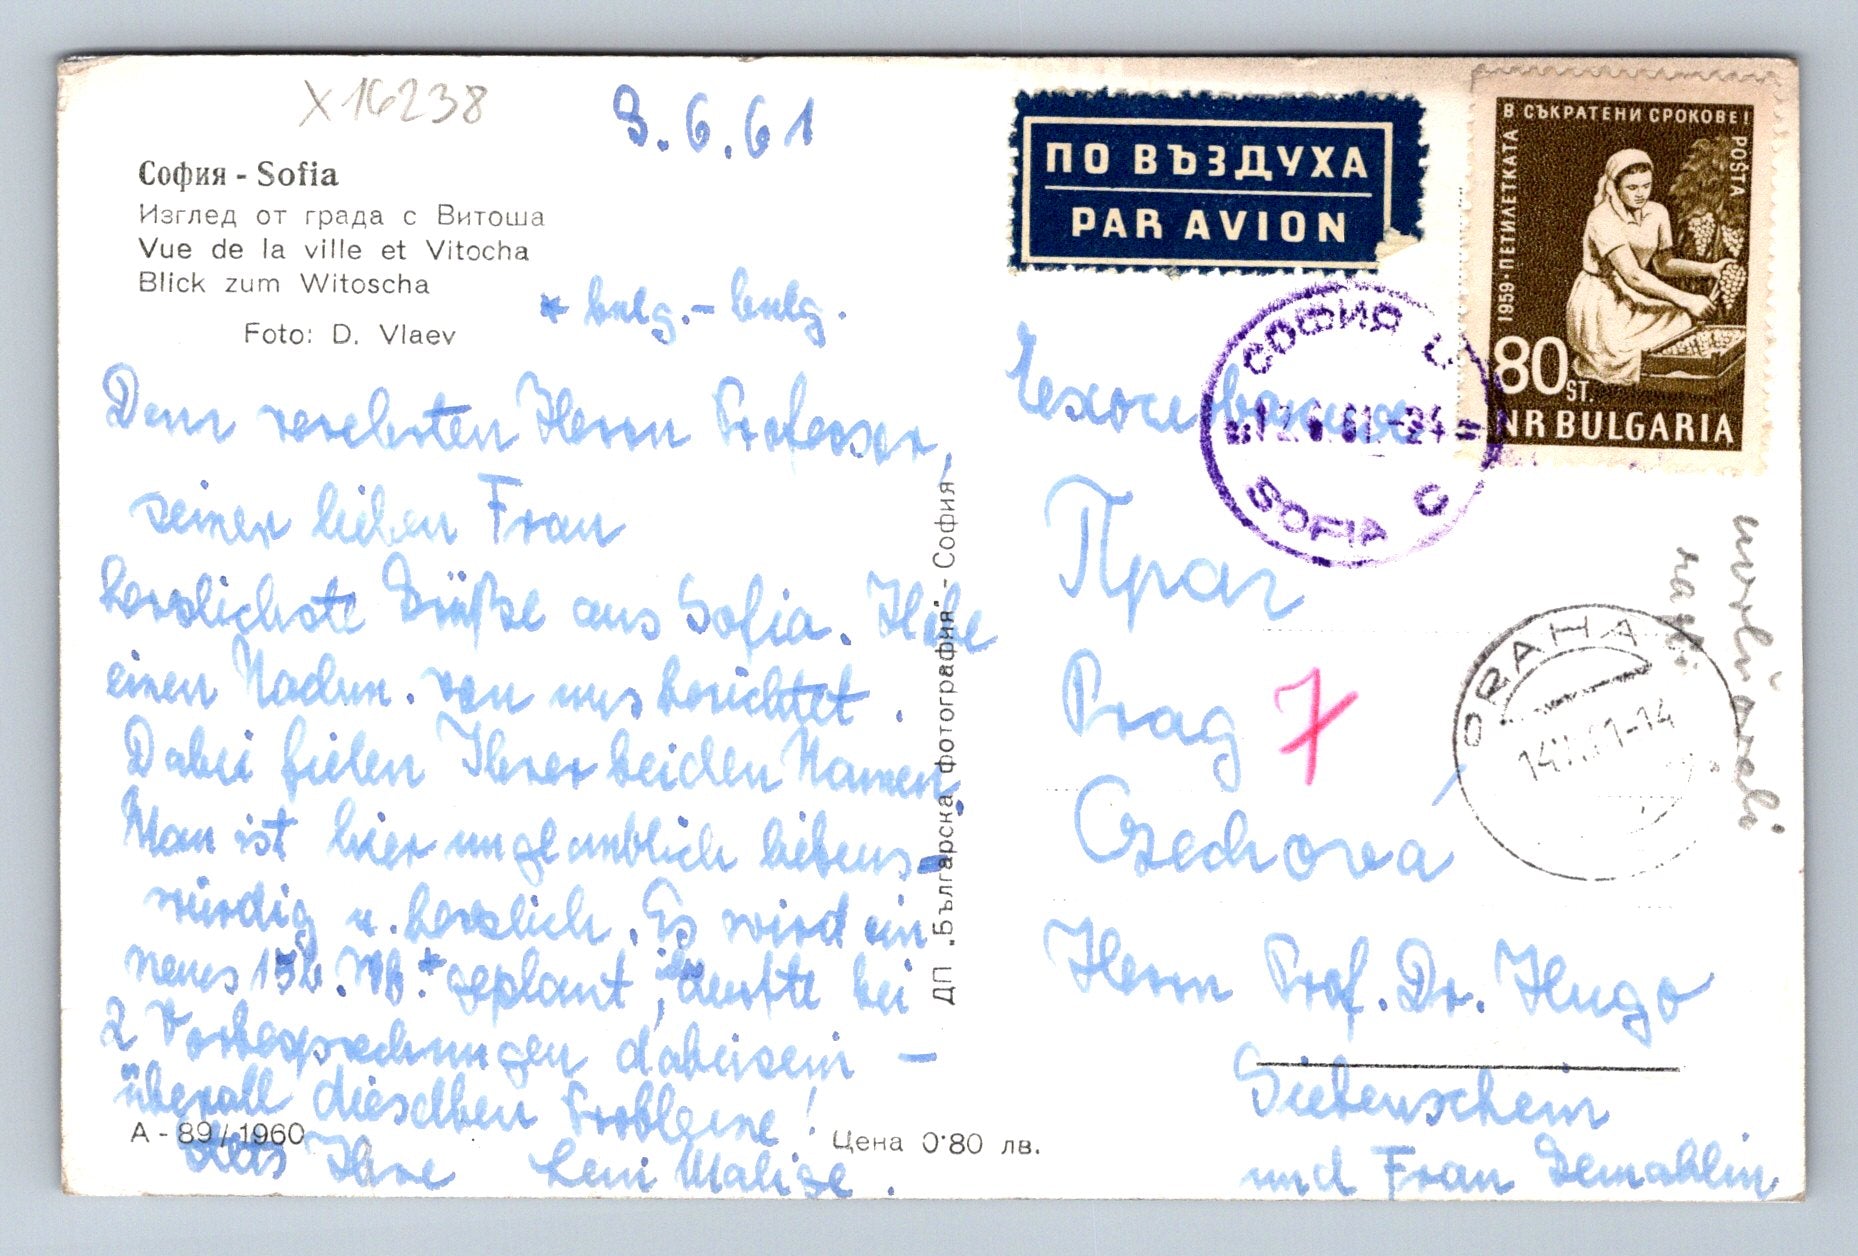 X16238
9.6.61
София - Sofia
Изглед от града с Витоша
Vue de la ville et Vitocha
Blick zum Witoscha
Foto: D. Vlaev
* bulg.- bulg.
Dem verehrten Herrn Professor,
seiner lieben Frau
herzlichste Grüße aus Sofia. Habe
einen Nachm. von uns berichtet.
Dabei fielen Ihrer beiden Namen.
Man ist hier unglaublich liebens-
würdig u. herzlich. Es wird ein
neues Wb.* geplant, ich durfte bei
2 Vorbesprechungen dabeisein —
überall dieselben Probleme!
A - 89/1960
Stets Ihre Leni
Цена 0·80 лв.
ДП „Българска фотография" - София
ПО ВЪЗДУХА
PAR AVION
В СЪКРАТЕНИ СРОКОВЕ!
1959·ПЕТИЛЕТКАТА
POSTA
80 ST.
NR BULGARIA
СОФИЯ Ц
12.6.61-24
SOFIA C
Чехословакия
Прага
Prag 7
PRAHA
14.VI.61-14
Czechová
Herrn Prof. Dr. Hugo
Siebenschein
und Frau Gemahlin